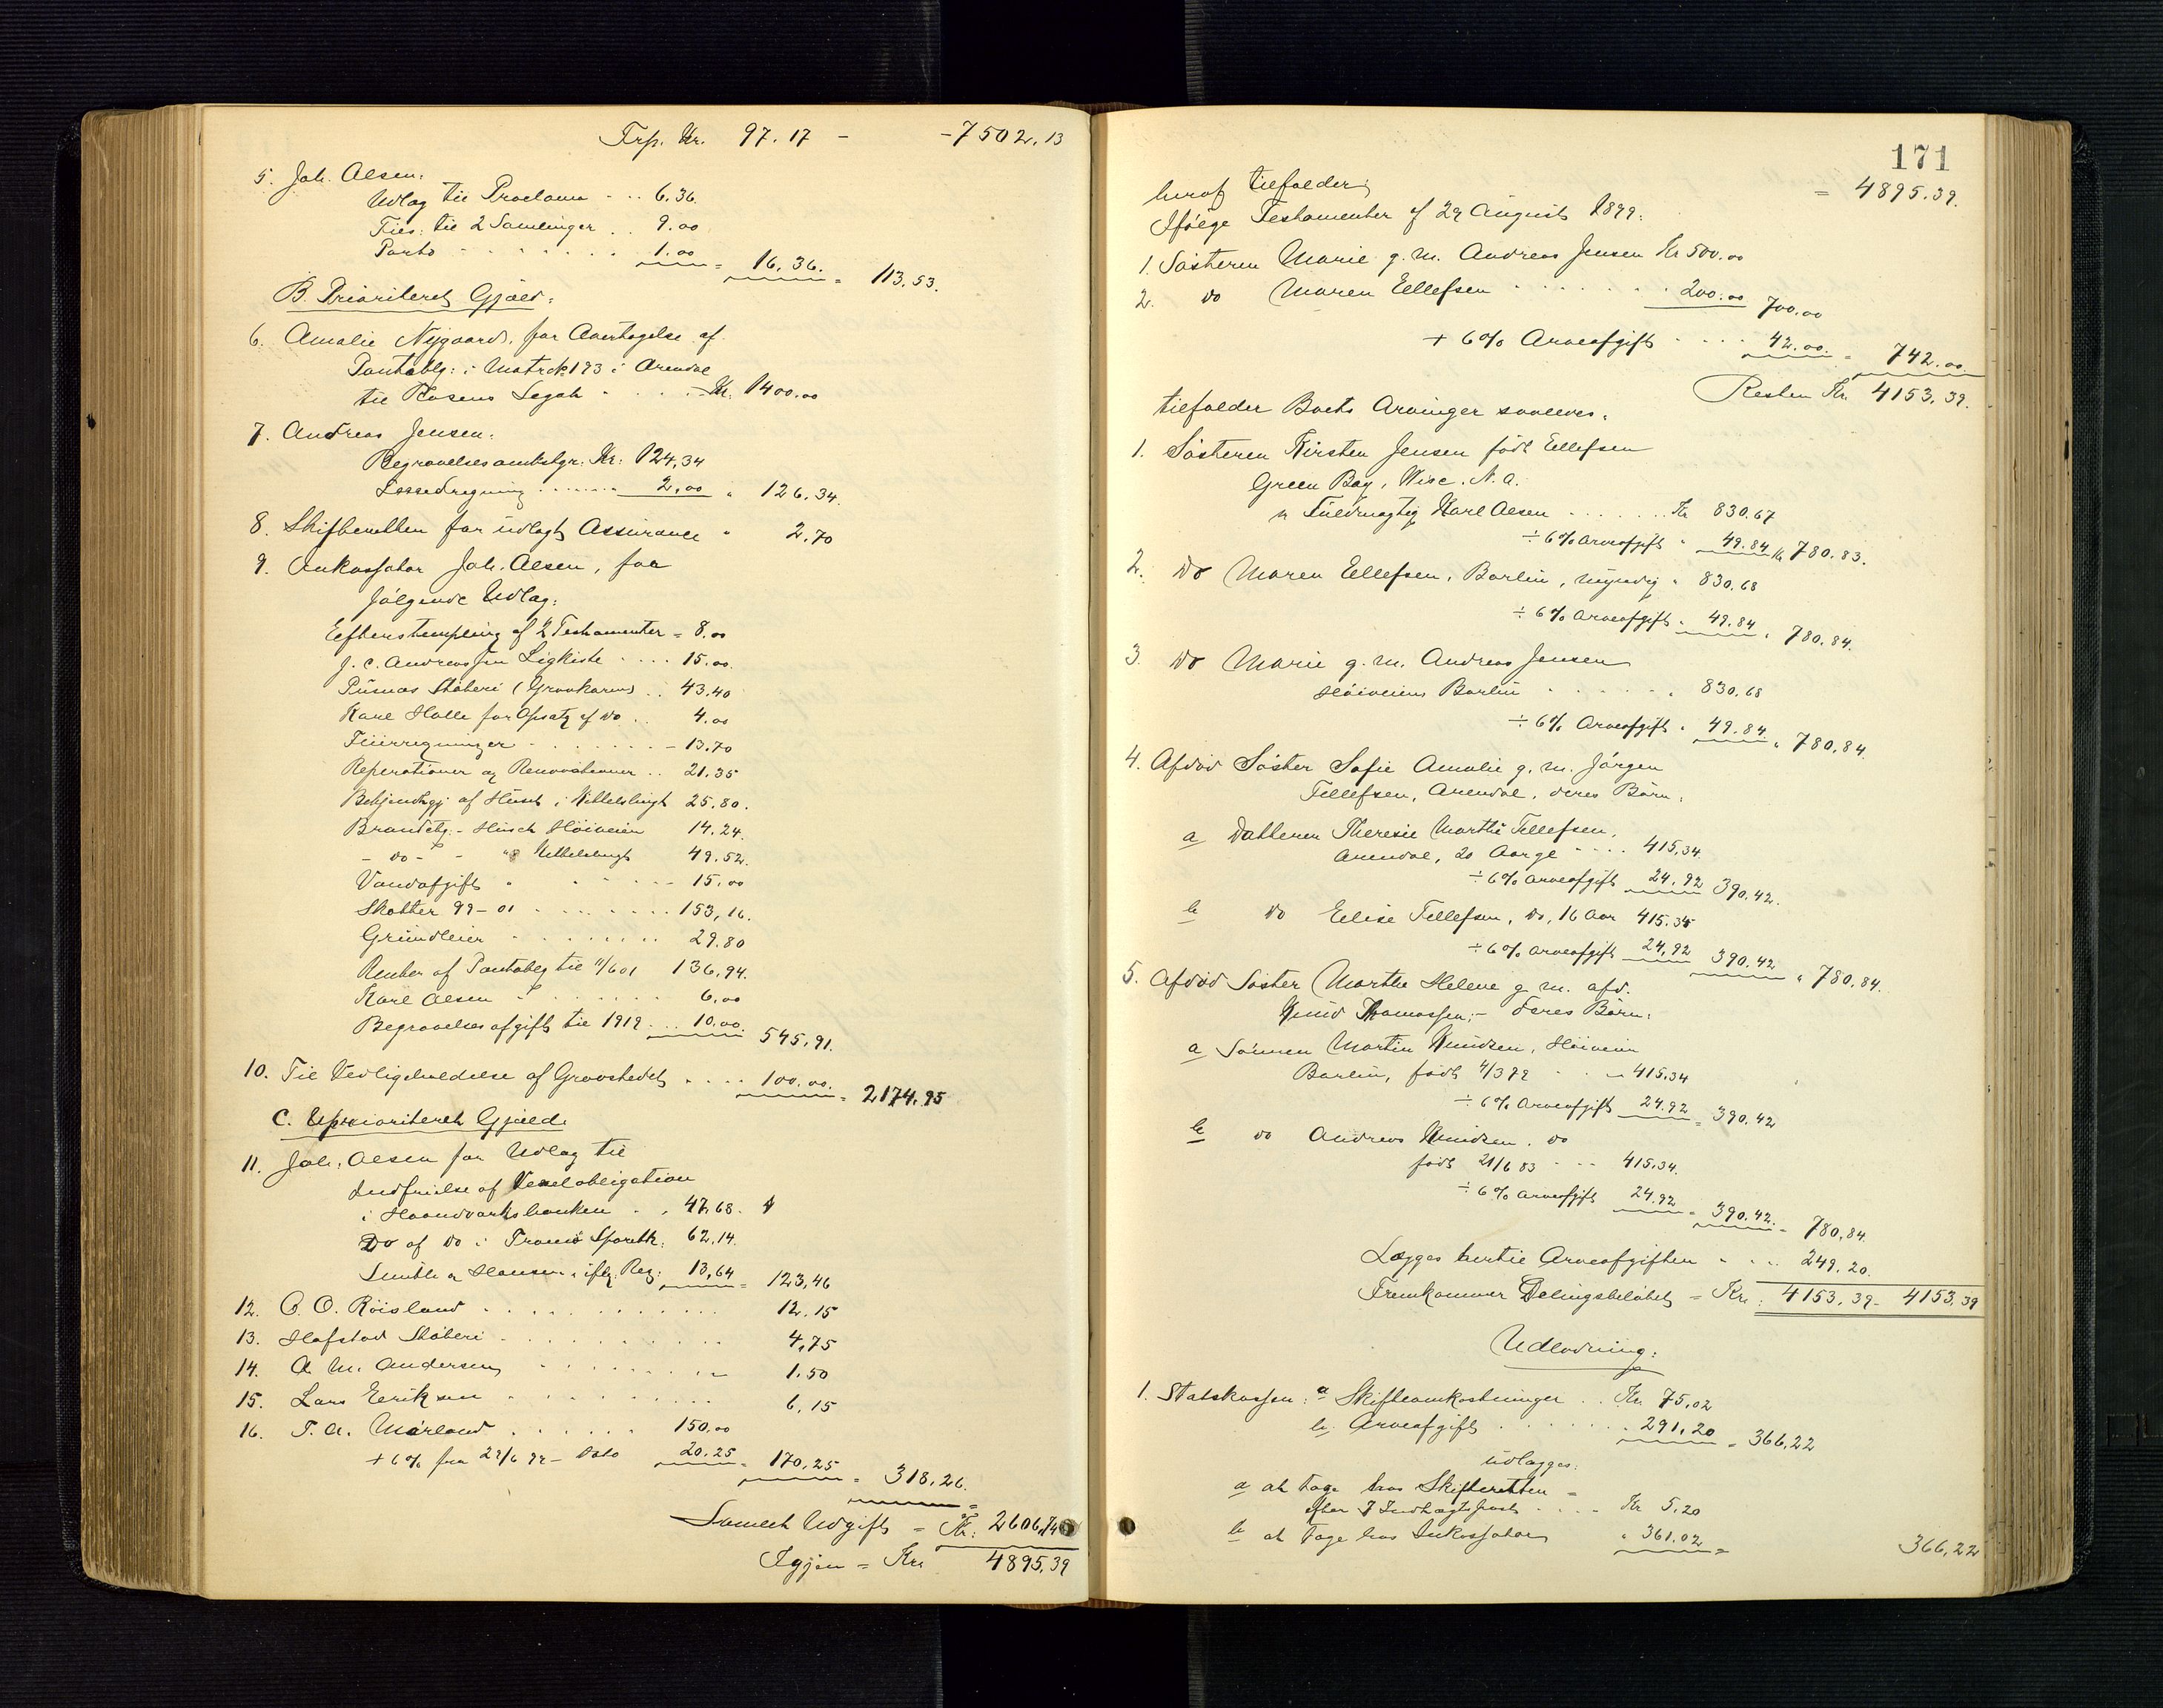 Trp. Kr. 97.17 - - 7502.13
5. Joh. Olsen:
Udlag til Proclama - .. 6.36.
Ties. til 2 Samlinger .. 9.00
Porto - - - - - - 1.00 = 16.36. = 113.53.
B. Prioriteret Gjæld:
6. Amalie Nygaard, for Overtagelse af
Pantoblg: i Matr. № 193 i Arendal
til Legat - - - - Kr. 1400.00
7. Andreas Jensen:
Begravelsesomkstgr. Kr: 124,34
2,00 " 126.34.
8. Skifteretten for udlagt Assurance " 2.70
9. Inkassator Joh. Olsen, for
følgende Udlag:
Efterstempling af 2 Testamenter = 8.00
J. C. Andreassen Ligkiste - - - - 15.00.
Pusnæs Støberi (Gravkarm) .. 43.40
Karl Halle for Opsatz af do .. 4.00
- - - - - - - 13.70
Reperationer og Renovationer .. 21.35
Bekjendtgj af Huset i Kittelsbugt 25.80.
Brandctg. - Huset Höiveien 14.24.
- do - - " Kittelsbugt 49.52.
Vandafgift " - - - - 15.00
Skatter 99-01 - - - - - - - 153,16.
Grundleier - - - - - - - 29.80
Renter af Pantoblg til 11/6 01 136,94.
Karl Olsen - - - - - - 6,00
Begravelsesafgift til 1919 - .. 10.00. 545,91.
10. Til Vedligeholdelse af Gravstedet - - - - 100.00. = 2174.95
C. Uprioriteret Gjæld.
11. Joh. Olsen for Udlag til
Indfrielse af Vexelobligation
i Haandværksbanken - . 47,68.
Do af do i Tromö Sparebk. 62,14.
Smith & Hansen iflg. Reg: 13,64 = 123,46
12. O. O. Röisland - - - - - - - 12.15
13. Hafstad Støberi - - - - - - - 4,75
14. A. M. Andersen - - - - - - 1.50
15. Lars Eriksen - - - - - - 6,15
16. T. A. Mørland - - - - - - 150.00
+ 6% fra 29/6 99 - Dato 20.25 = 170,25 = 318,26.
Samlet Udgift = Kr: 2606,74
Igjen = Kr. 4895,39
171
herof tilfalder: = 4895.39.
Ifølge Testamenter af 29 August 1899:
1. Søsteren Marie g. m. Andreas Jensen Kr 500.00
2. do Maren Ellefsen - - - - - - 200.00 700.00
+ 6% Arveafgift - - - - 42.00. = 742.00.
Resten Kr. 4153.39.
tilfalder Boets Arvinger saaledes:
1. Søsteren Kirsten Jensen født Ellefsen
Green Bay, Wisc. N. A.
v Fuldmægtig Karl Olsen - - - - - - Kr 830.67
÷ 6% Arveafgift " 49.84 Kr 780.83.
2. do Maren Ellefsen, Barbu, myndig " 830,68
÷ 6% Arveafgift " 49.84 " 780.84.
3. do Marie g. m. Andreas Jensen
Höiveiens Barbu - - - - - " 830,68
÷ 6% Arveafgift " 49.84 " 780,84.
4. Afdød Søster Sofie Amalie g. m. Jörgen
Tellefsen, Arendal, deres Børn:
a Datteren Theresie Marthe Tellefsen,
Arendal, 20 Aar gl - - - - 415,34.
÷ 6% Arveafgift 24,92 390.42.
b do Elise Tellefsen, do, 16 Aar 415.35
÷ 6% Arveafgift 24,92 390.42 " 780,84.
5. Afdød Søster Marthe Helene g. m. afd.
Knud Thomassen; - deres Børn:
a Sønnen Martin Knudsen, Höiveien
Barbu, født 4/3 79 - - - 415,34
÷ 6% Arveafgift 24.92 = 390.42
b do Andreas Knudsen, do
født 21/6 83 - - - 415,34.
÷ 6% Arveafgift 24.92 = 390.42. = 780,84.
Lægges hertil Arveafgiften - - .. 249.20.
Fremkommer Delingsbeløbet = Kr: 4153,39 - 4153,39
Udlodning:
1. Statskassen: a Skifteomkostninger .. Kr. 75,02
b. Arveafgift - - - - - - 291,20 = 366,22
udlægges:
a at tage hos Skifteretten =
efter 7 Indtægtspost - - - - Kr 5,20
b at tage hos Inkassator " 361.02 = 366,22